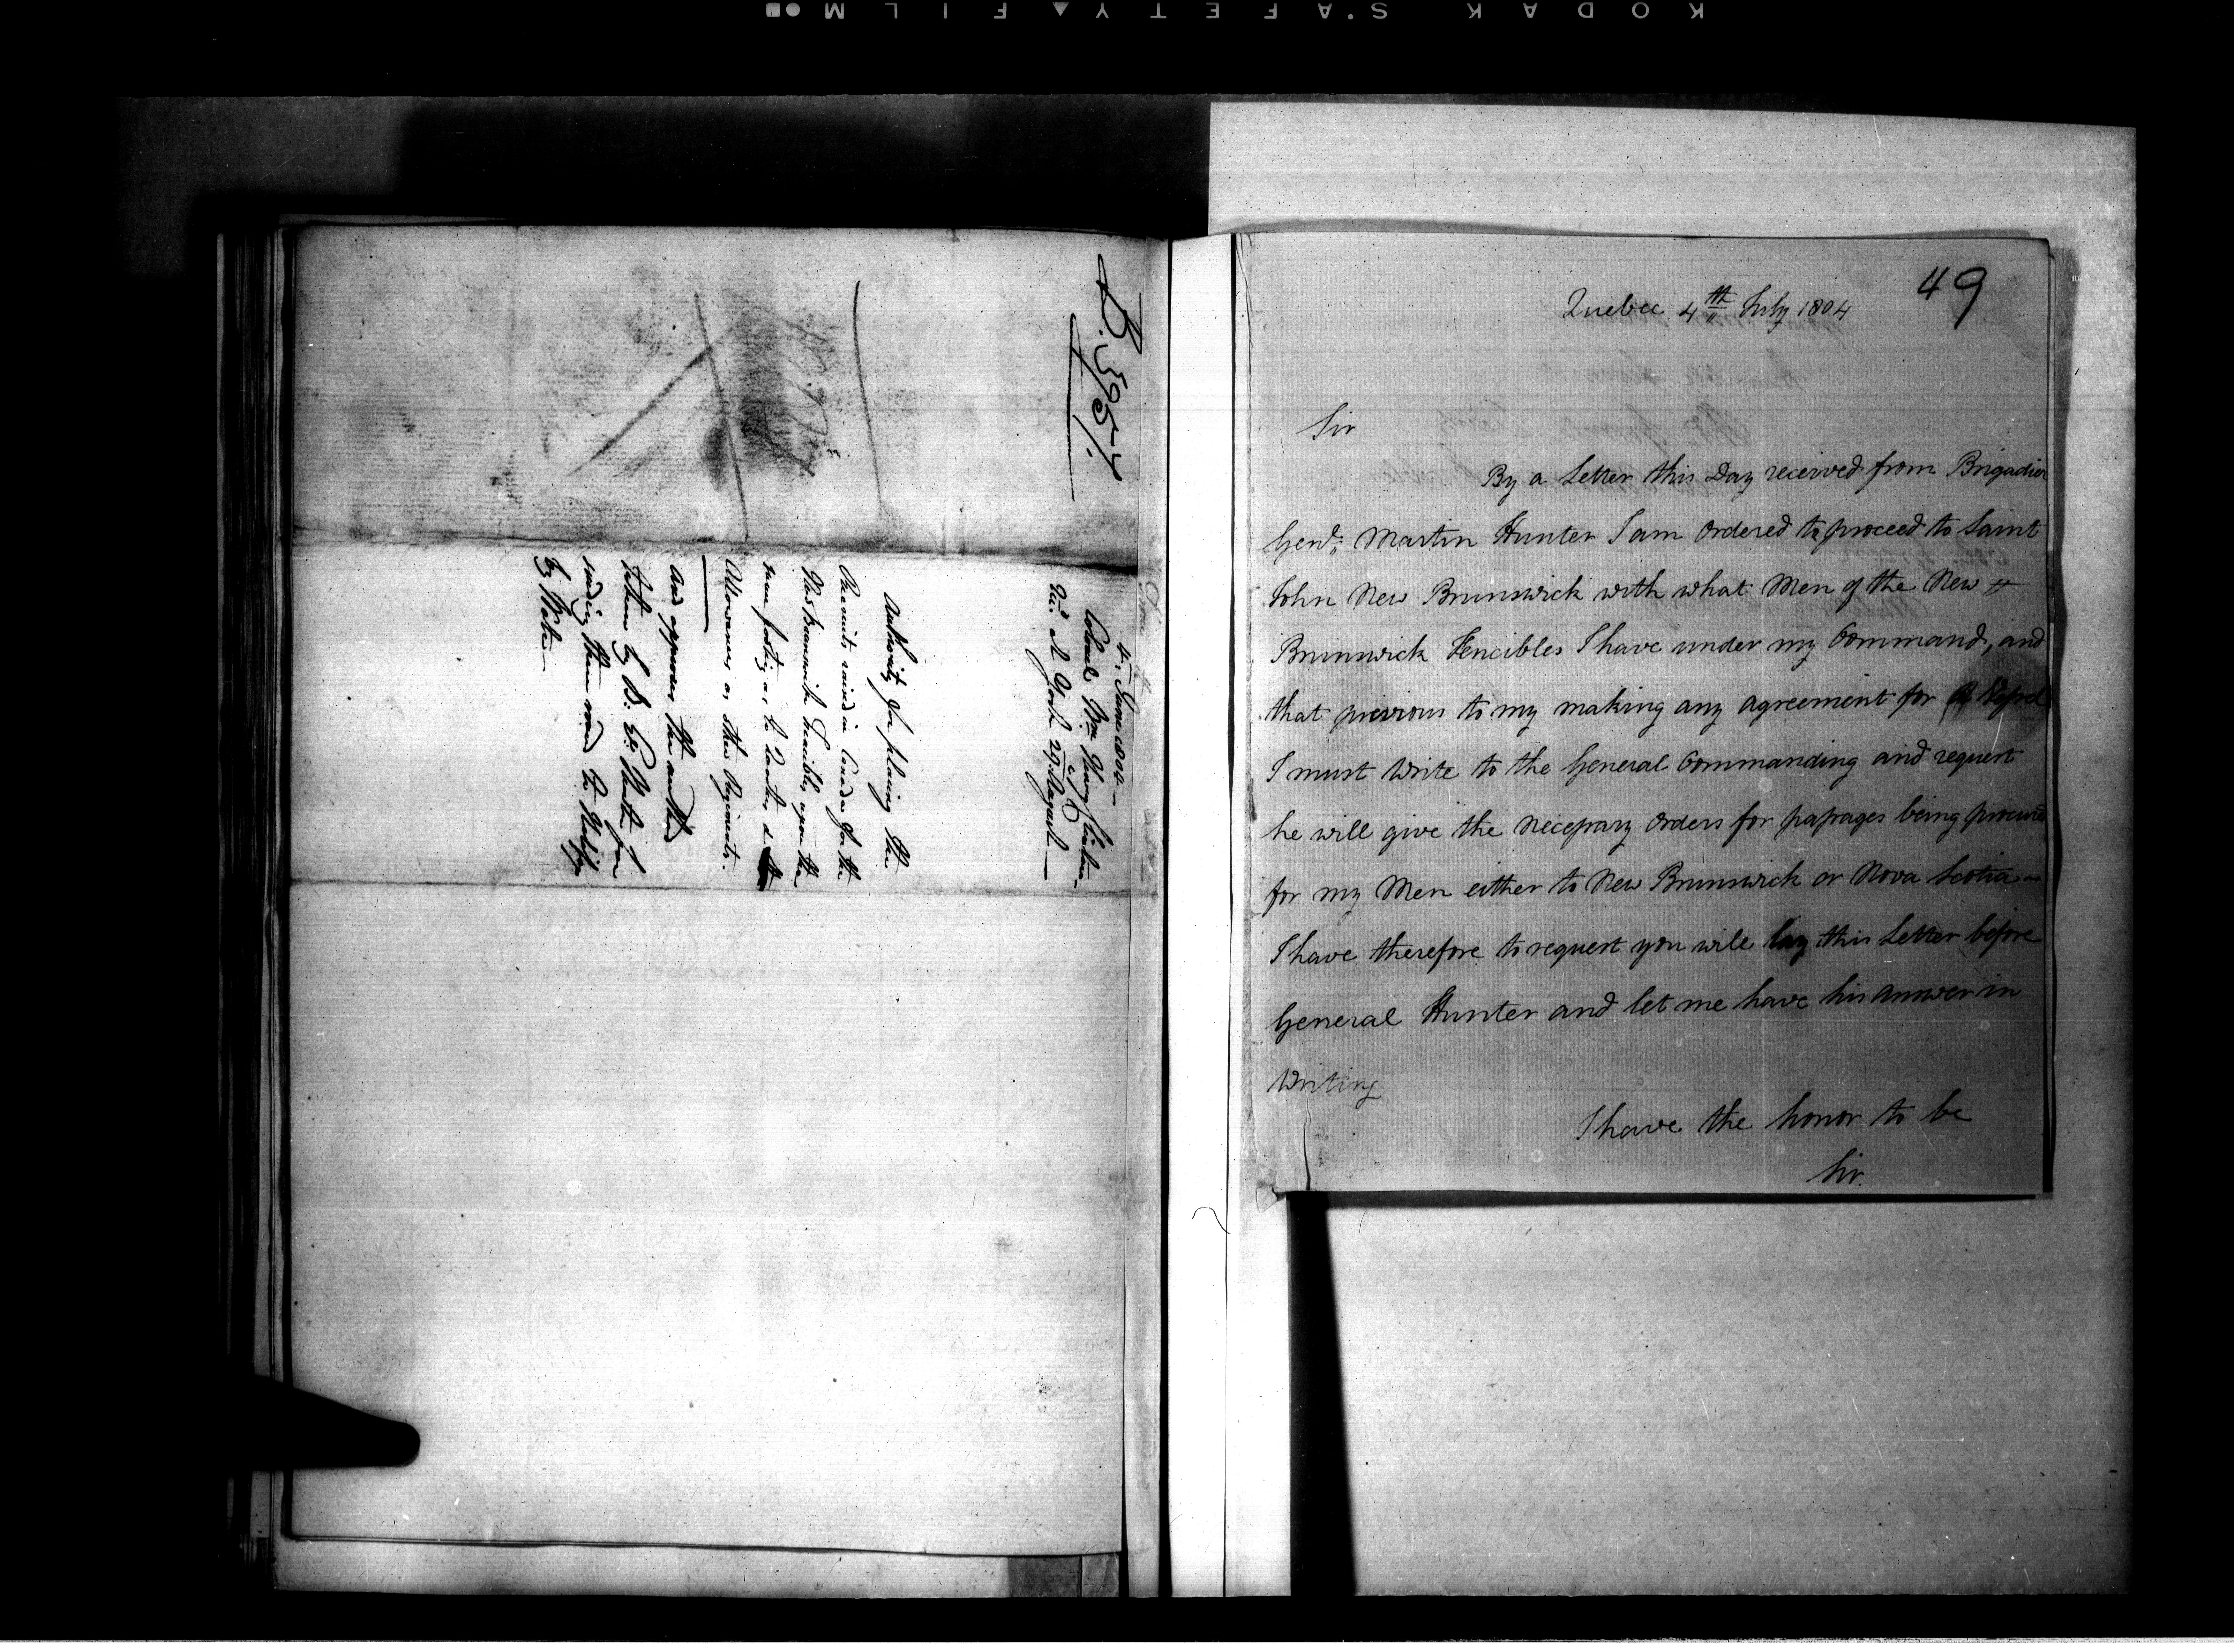 KODAK SAFETY FILM
4th June 1804—
Colonel Wm Henry Clinton
Rec. at York 29 August—
Authority for placing the
Recruits raised in Canada for the
New Brunswick Fencibles upon the
same footing as to
Allowances as other Regiments.
And approves the method
taken by
sending them round to Halifax
by Water—
49
Quebec 4th July 1804
Sir
By a Letter this Day received from Brigadier
Genl: Martin Hunter I am ordered to proceed to Saint
John New Brunswick with what Men of the New
Brunswick Fencibles I have under my Command, and
that previous to my making any agreement for a Vessel
I must Write to the General Commanding and request
he will give the necessary Orders for passages being procured
for my Men either to New Brunswick or Nova Scotia—
I have therefore to request you will lay this Letter before
General Hunter and let me have his answer in
Writing
I have the honor to be
Sir.